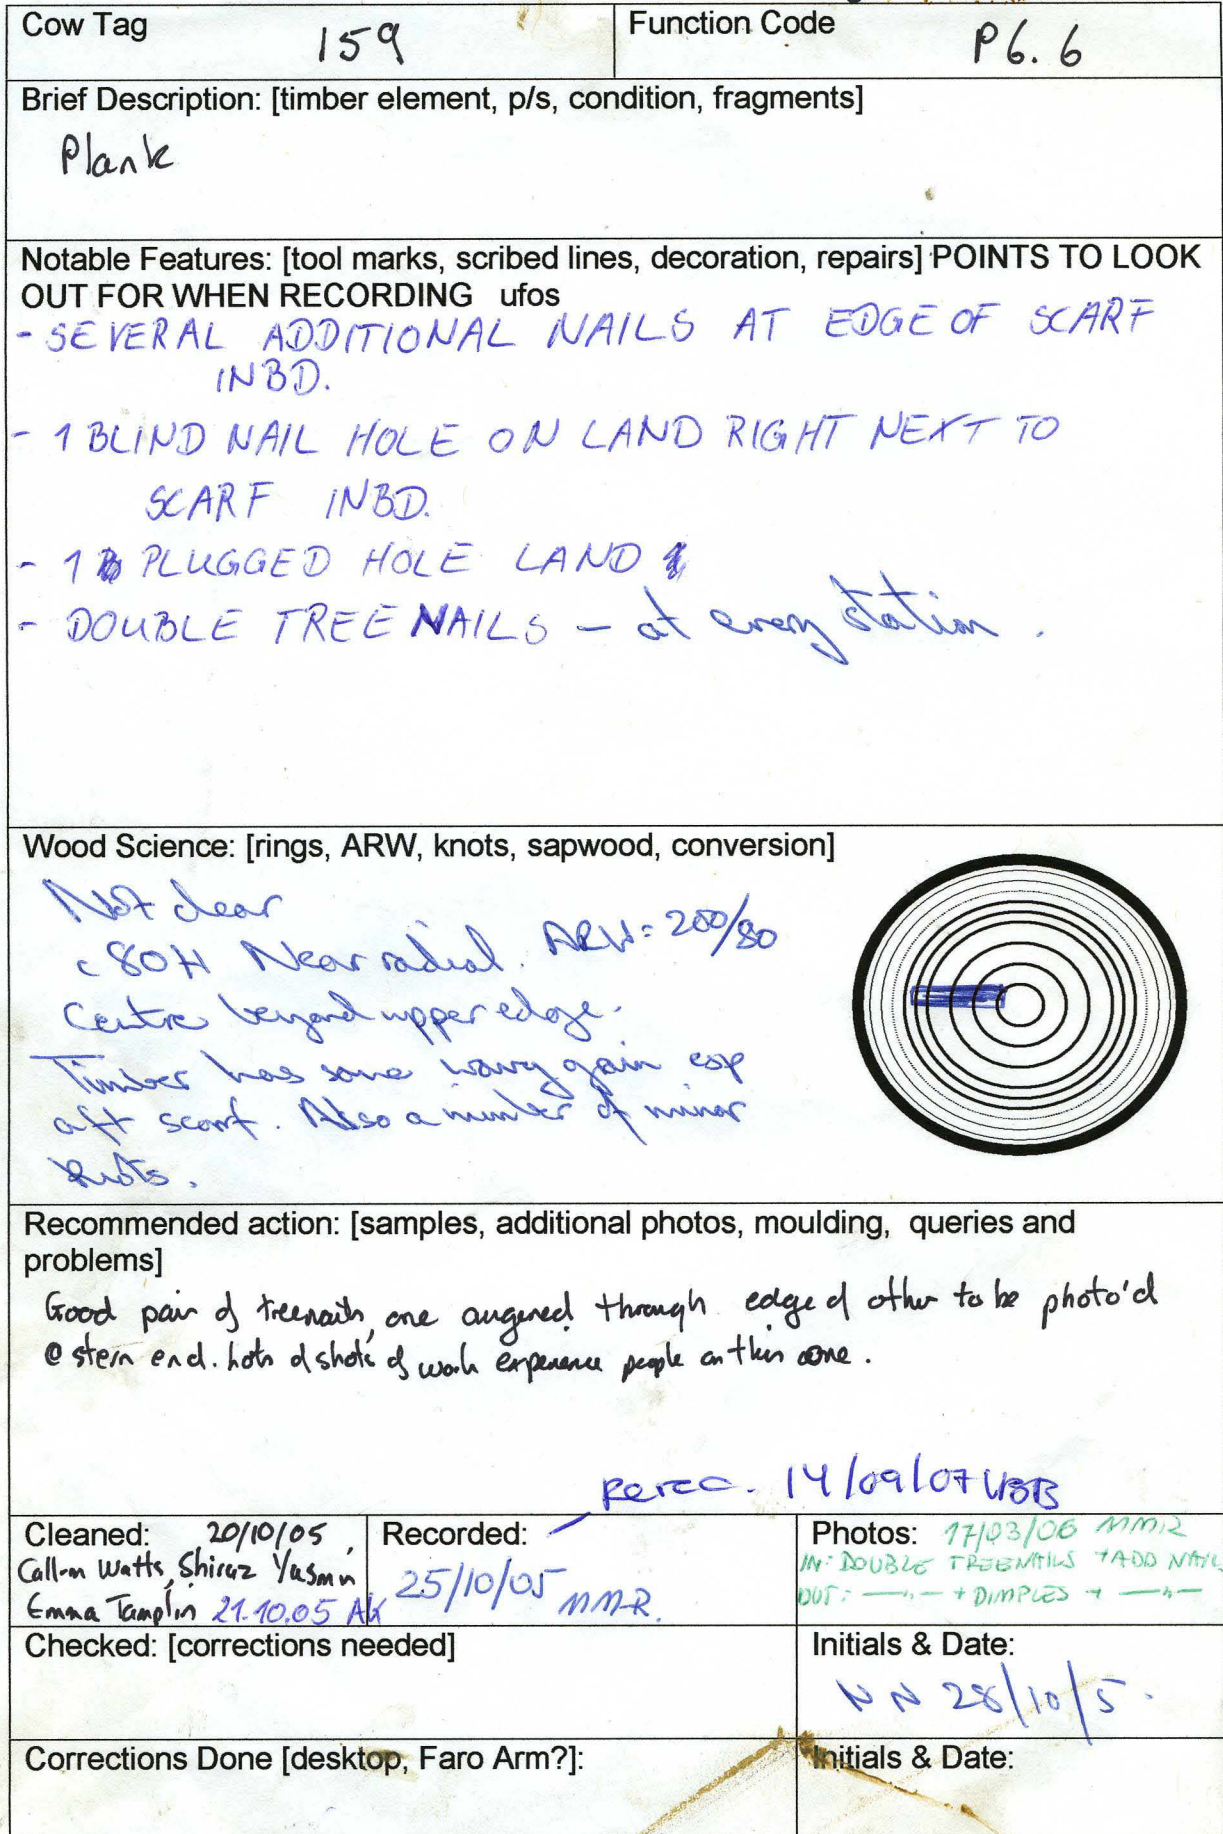 Cow Tag
159
Function Code
P6.6
Brief Description: [timber element, p/s, condition, fragments]
Plank
Notable Features: [tool marks, scribed lines, decoration, repairs] POINTS TO LOOK
OUT FOR WHEN RECORDING ufos
- SEVERAL ADDITIONAL NAILS AT EDGE OF SCARF
INBD.
- 1 BLIND NAIL HOLE ON LAND RIGHT NEXT TO
SCARF INBD.
- 1 PLUGGED HOLE LAND
- DOUBLE TREENAILS - at every station.
Wood Science: [rings, ARW, knots, sapwood, conversion]
Not clear
c 80H Near radial. ARW= 200/80
Centre beyond upper edge.
Timber has some wavy gain esp
aft scarf. Also a number of minor
knots.
Recommended action: [samples, additional photos, moulding, queries and
problems]
Good pair of treenails, one augered through edge of other to be photo'd
@ stern end. lots of shots of work experience people on this one.
Rerec. 14/09/07
Cleaned: 20/10/05,
Callum Watts, Shiraz Yasmin
Emma Tamplin 21.10.05 AK
Recorded:
25/10/05 MMR.
Photos: 17/03/06 MMR
IN: DOUBLE TREENAILS + ADD NAILS
OUT: —〃— + DIMPLES + —〃—
Checked: [corrections needed]
Initials & Date:
NN 28/10/5.
Corrections Done [desktop, Faro Arm?]:
Initials & Date: